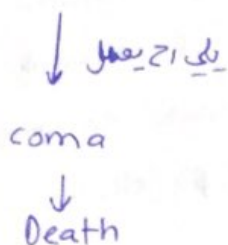 يلي اح يعمل
coma
Death